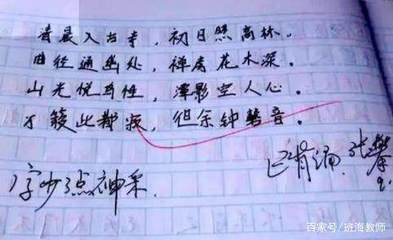 清晨入古寺，初日照高林。
曲径通幽处，禅房花木深。
山光悦鸟性，潭影空人心。
万籁此都寂，但余钟磬音。
已背诵，张
字少点神采
百家号/班海教师